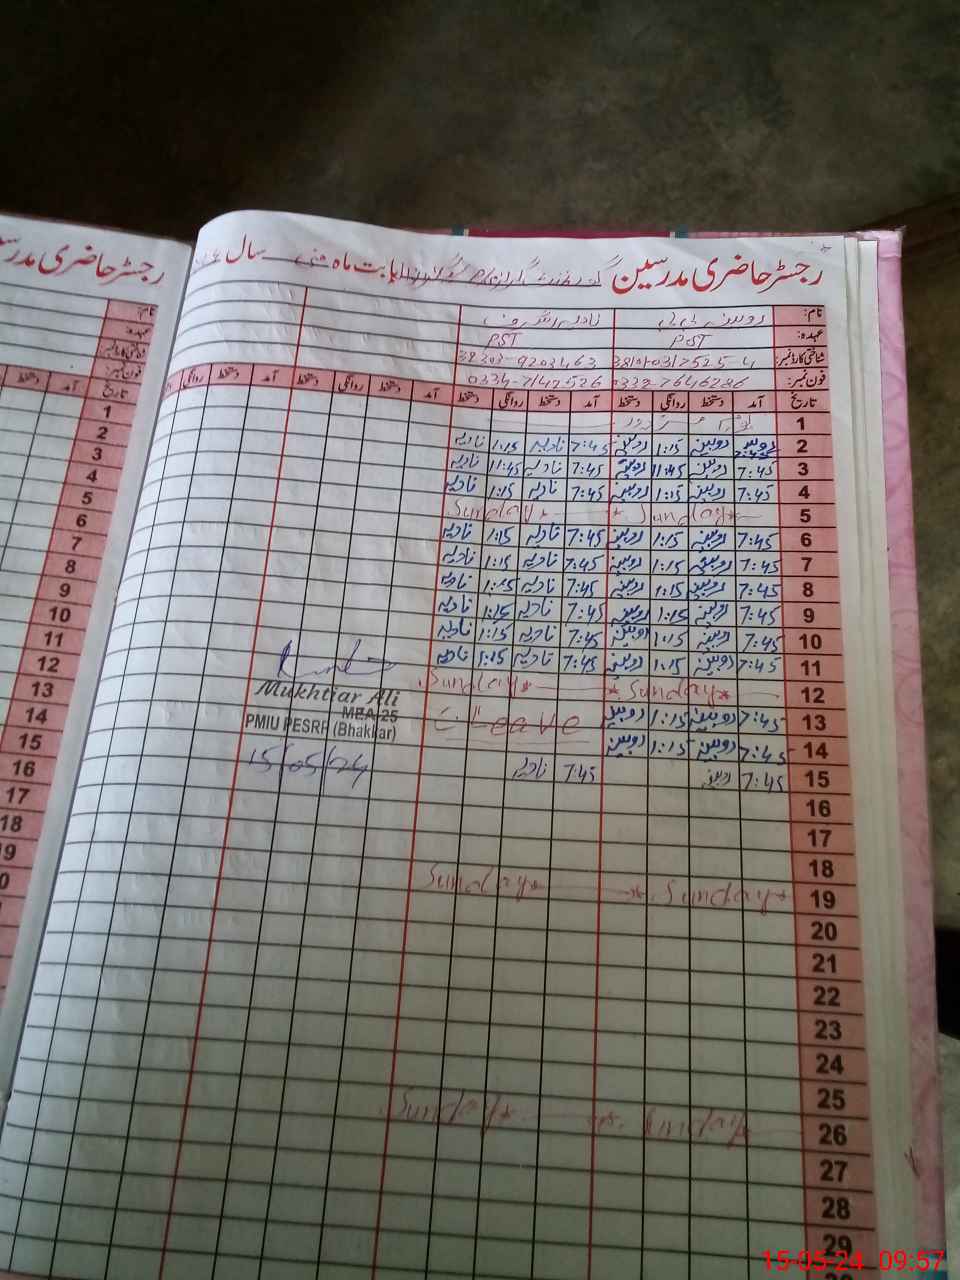 رجسٹر حاضری مدرسین بابت ماہ مئی سال
نام: روبینہ بی بی نادیہ اشرف
عہدہ: PST PST
شناختی کارڈ نمبر:
فون نمبر: 0332-7646286 0334-7142526
تاریخ آمد دستخط روانگی دستخط آمد دستخط روانگی دستخط آمد دستخط روانگی دستخط
1
2 7:45 روبینہ 1:15 روبینہ 7:45 نادیہ 1:15 نادیہ
3 7:45 روبینہ 11:45 روبینہ 7:45 نادیہ 11:45 نادیہ
4 7:45 روبینہ 1:15 روبینہ 7:45 نادیہ 1:15 نادیہ
5 Sunday Sunday
6 7:45 روبینہ 1:15 روبینہ 7:45 نادیہ 1:15 نادیہ
7 7:45 روبینہ 1:15 روبینہ 7:45 نادیہ 1:15 نادیہ
8 7:45 روبینہ 1:15 روبینہ 7:45 نادیہ 1:15 نادیہ
9 7:45 روبینہ 1:15 روبینہ 7:45 نادیہ 1:15 نادیہ
10 7:45 روبینہ 1:15 روبینہ 7:45 نادیہ 1:15 نادیہ
11 7:45 روبینہ 1:15 روبینہ 7:45 نادیہ 1:15 نادیہ
12 Sunday Sunday
13 7:45 روبینہ 1:15 روبینہ Leave
14 7:45 روبینہ 1:15 روبینہ
15 7:45 روبینہ 7:45 نادیہ
16
17
18
19 Sunday Sunday
20
21
22
23
24
25
26 Sunday Sunday
27
28
29
Mukhtiar Ali
MEA-25
PMIU PESRP (Bhakkar)
15/05/24
رجسٹر حاضری
نام:
عہدہ:
شناختی کارڈ نمبر:
فون نمبر:
تاریخ آمد دستخط
1
2
3
4
5
6
7
8
9
10
11
12
13
14
15
16
17
18
15-05-24 09:57